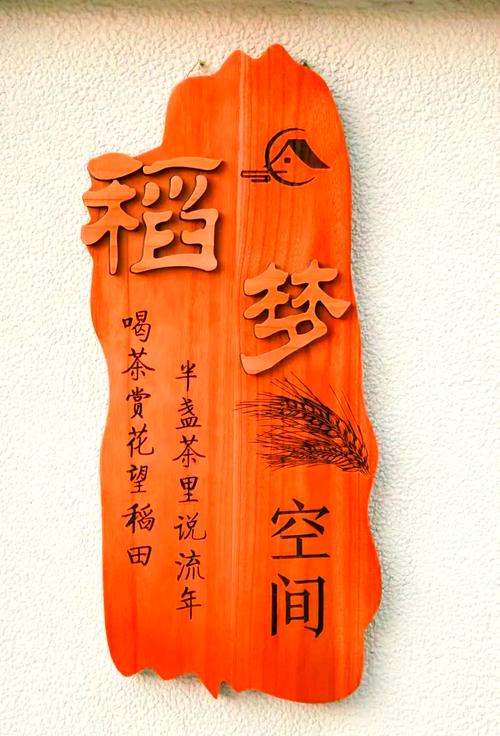 稻梦
空间
喝茶赏花望稻田
半盏茶里说流年